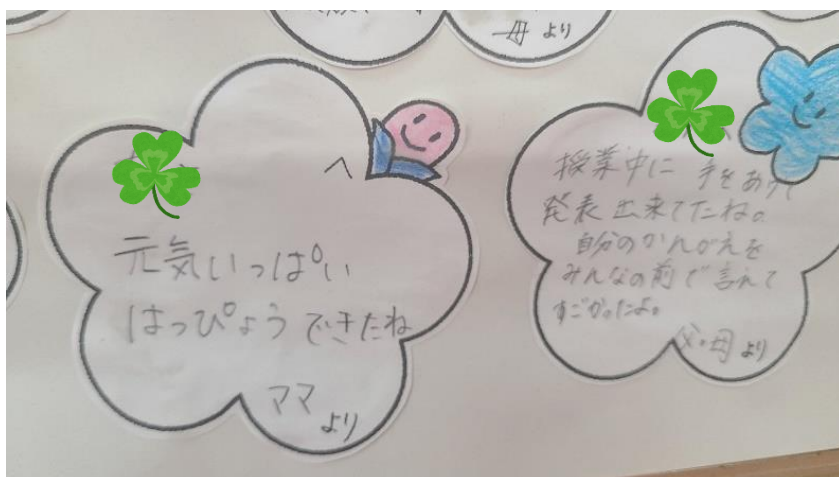 母より
へ
元気いっぱい
はっぴょうできたね
ママより
授業中に 手をあげて
発表出来てたね。
自分のかんがえを
みんなの前で言えて
すごかったよ。
父・母より